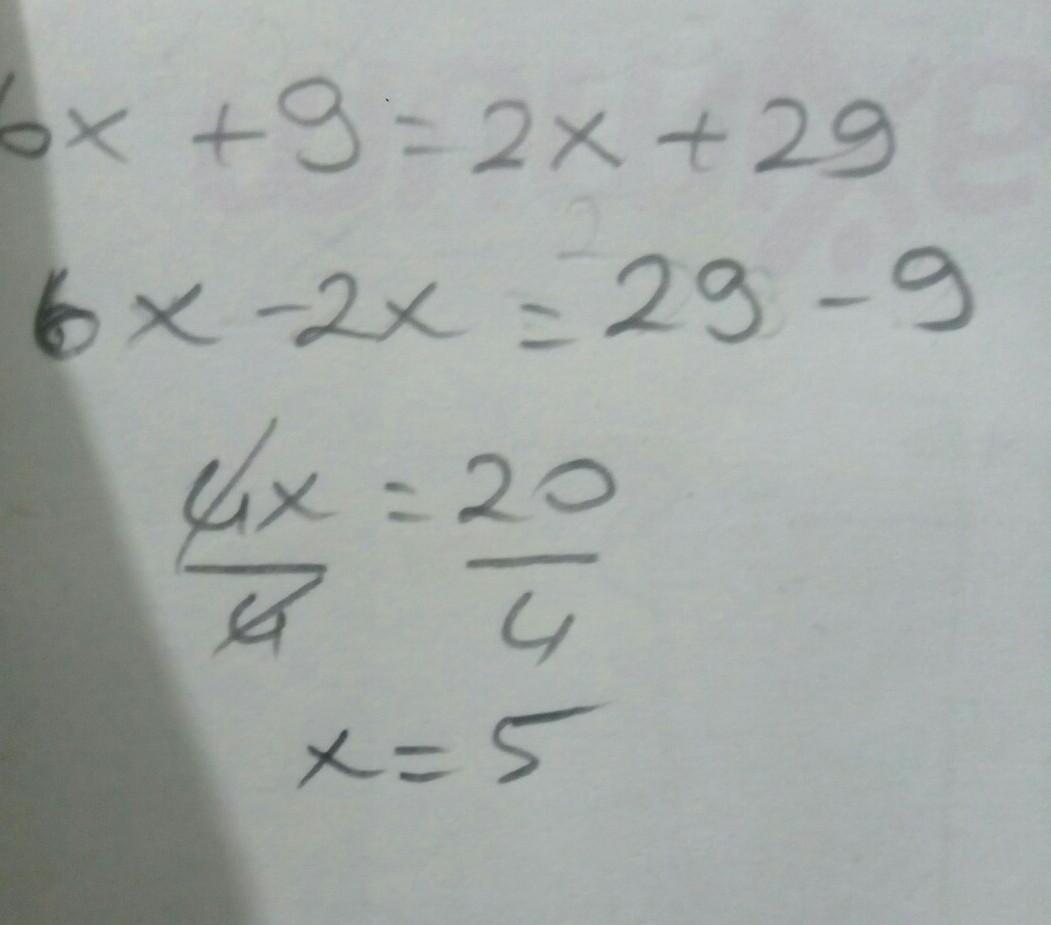 6x + 9 = 2x + 29
6x - 2x = 29 - 9
4x = 20
4 4
x = 5